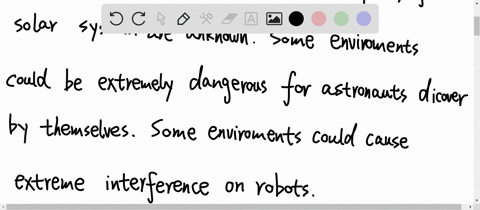 solar in are unknown. Some enviroments
could be extremely dangerous for astronauts dicover
by themselves. Some enviroments could cause
extreme interference on robots.